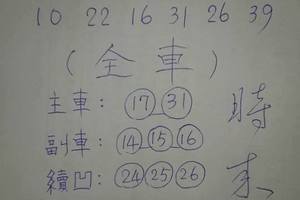 10 22 16 31 26 39
(全車)
主車: 17 31
副車: 14 15 16
續凹: 24 25 26
時
來